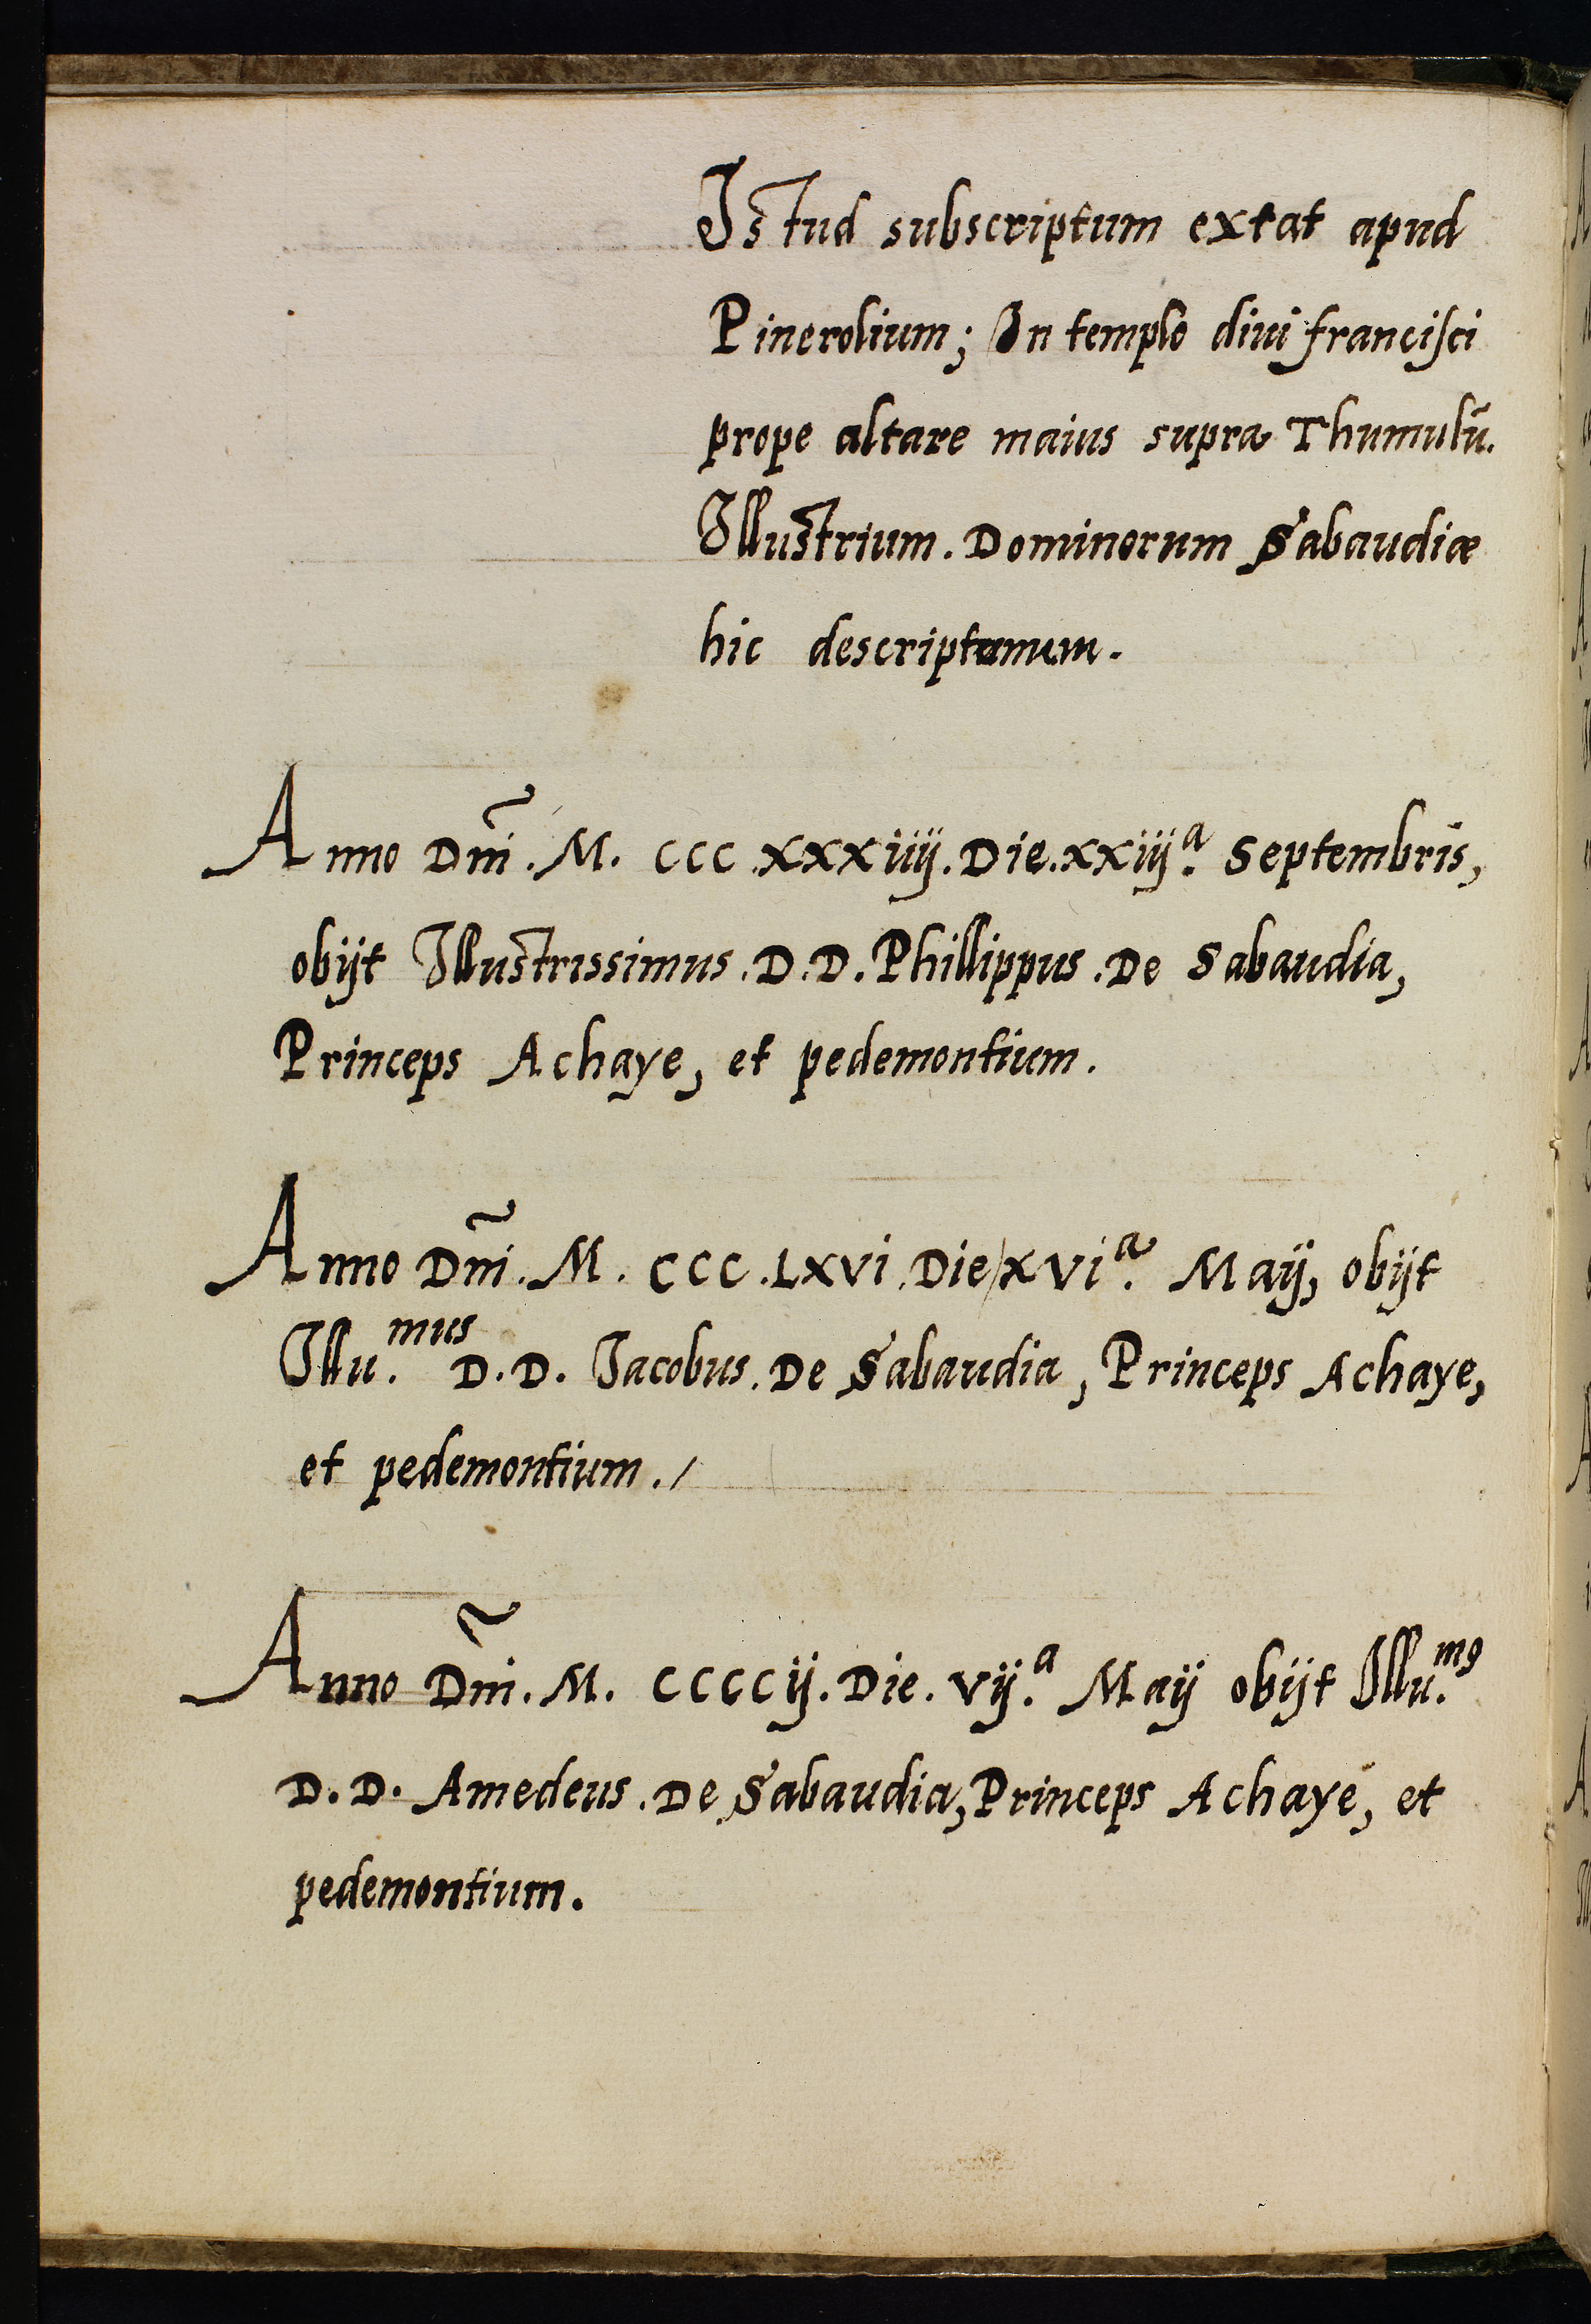 Istud subscriptum extat apud
Pinerolium; In templo diui francisci
prope altare maius supra Thumulū.
Illustrium. Dominorum Sabaudiæ
hic descriptumum.
Anno Dm̃i. M. CCC .xxxiiij. Die. xxiijᵃ. Septembris,
obijt Illustrissimus. D. D. Phillippus. De Sabaudia,
Princeps Achaye, et pedemontium.
Anno Dm̃i. M. CCC .Lxvi. Die/xviᵃ. Maij, obijt
Illu.ᵐᵘˢ D. D. Jacobus. De Sabaudia, Princeps Achaye,
et pedemontium./
Anno Dm̃i. M. CCCC ij. Die. vij.ᵃ Maij obijt Illu.ᵐ⁹
D. D. Amedeus. De Sabaudia, Princeps Achaye, et
pedemontium.